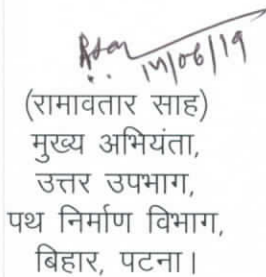 14/06/19
(रामावतार साह)
मुख्य अभियंता,
उत्तर उपभाग,
पथ निर्माण विभाग,
बिहार, पटना।